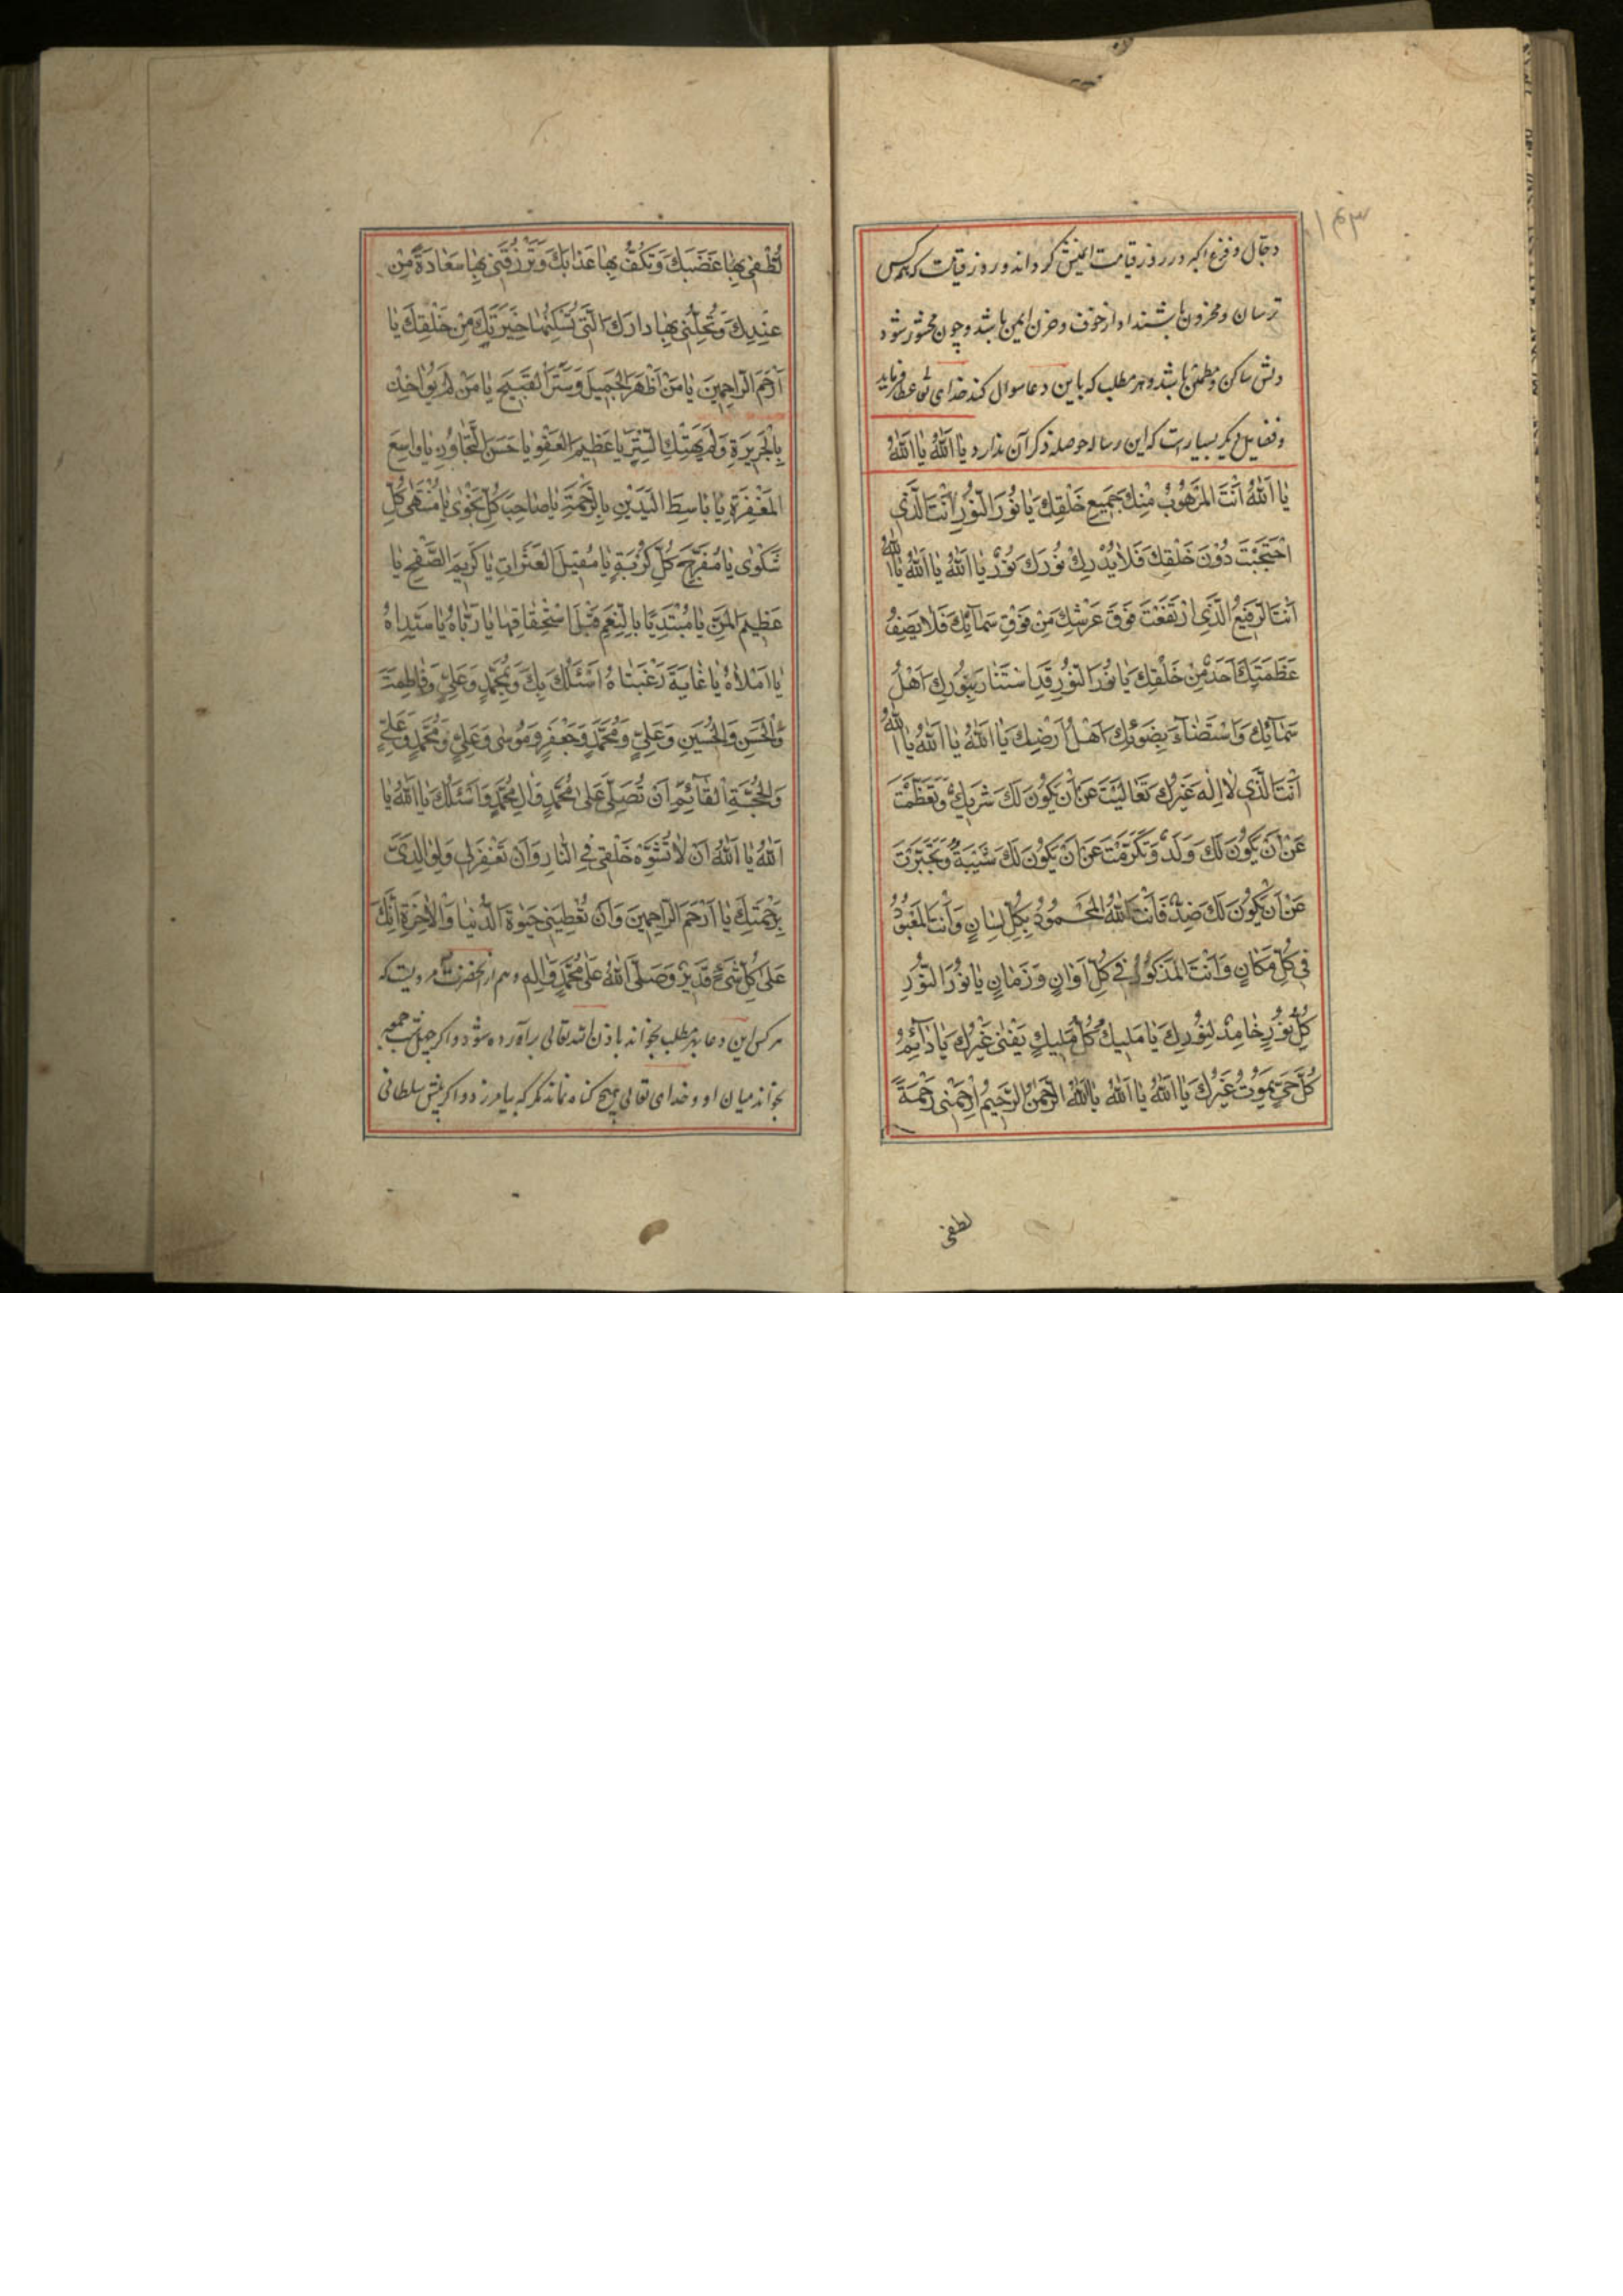 ۱۴۳
دجال و فزع اکبر در روز قیامت ایمنش گرداند و روز قیامت که همه کس
ترسان و محزون باشند او از خوف و حزن ایمن باشد و چون محشور شود
دلش ساکن و مطمئن باشد و هر مطلب که باین دعا سوال کند خدای تعالی عطا فرماید
و فضایل دیگر بسیار است که این رساله حوصله ذکر آن ندارد یٰا اَللّٰهُ یٰا اَللّٰهُ
یٰا اَللّٰهُ اَنْتَ الْمَرْهُوْبُ مِنْكَ جَمِیعُ خَلْقِكَ یٰا نُوْرَ النُّوْرِ اَنْتَ الَّذِی
احْتَجَبْتَ دُوْنَ خَلْقِكَ فَلٰا یُدْرِكُ نُوْرَكَ نُوْرٌ یٰا اَللّٰهُ یٰا اَللّٰهُ یٰا اَللّٰهُ
اَنْتَ الرَّفِیْعُ الَّذِی ارْتَفَعْتَ فَوْقَ عَرْشِكَ مِنْ فَوْقِ سَمٰآئِكَ فَلٰا یَصِفُ
عَظَمَتَكَ اَحَدٌ مِنْ خَلْقِكَ یٰا نُوْرَ النُّوْرِ قَدِ اسْتَنٰارَ بِنُوْرِكَ اَهْلُ
سَمٰآئِكَ وَاسْتَضٰآءَ بِضَوْئِكَ اَهْلُ اَرْضِكَ یٰا اَللّٰهُ یٰا اَللّٰهُ یٰا اَللّٰهُ
اَنْتَ الَّذِی لٰا اِلٰهَ غَیْرُكَ تَعٰالَیْتَ عَنْ اَنْ یَكُوْنَ لَكَ شَرِیكٌ وَتَعَظَّمْتَ
عَنْ اَنْ یَكُوْنَ لَكَ وَلَدٌ وَتَكَرَّمْتَ عَنْ اَنْ یَكُوْنَ لَكَ شَبِیْهٌ وَتَجَبَّرْتَ
عَنْ اَنْ یَكُوْنَ لَكَ ضِدٌّ فَاَنْتَ اللّٰهُ الْمَحْمُوْدُ بِكُلِّ لِسٰانٍ وَاَنْتَ الْمَعْبُوْدُ
فِی كُلِّ مَكٰانٍ وَاَنْتَ الْمَذْكُوْرُ فِی كُلِّ اَوٰانٍ وَزَمٰانٍ یٰا نُوْرَ النُّوْرِ
كُلُّ نُوْرٍ خٰامِدٌ لِنُوْرِكَ یٰا مَلِیكُ كُلُّ مَلِیكٍ یَفْنٰی غَیْرُكَ یٰا دٰآئِمُ
كُلُّ حَیٍّ یَمُوْتُ غَیْرُكَ یٰا اَللّٰهُ یٰا اَللّٰهُ یٰا اَللّٰهُ الرَّحْمٰنُ الرَّحِیْمُ اِرْحَمْنِی رَحْمَةً
تُطْفِی بِهٰا غَضَبَكَ وَتَكُفُّ بِهٰا عَذٰابَكَ وَتَرْزُقُنِی بِهٰا سَعٰادَةً مِنْ
عِنْدِكَ وَتُحِلُّنِی بِهٰا دٰارَكَ الَّتِی تُسْكِنُهٰا خِیَرَتَكَ مِنْ خَلْقِكَ یٰا
اَرْحَمَ الرّٰاحِمِیْنَ یٰا مَنْ اَظْهَرَ الْجَمِیلَ وَسَتَرَ الْقَبِیْحَ یٰا مَنْ لَمْ یُؤٰاخِذْ
بِالْجَرِیْرَةِ وَلَمْ یَهْتِكِ السِّتْرَ یٰا عَظِیْمَ الْعَفْوِ یٰا حَسَنَ التَّجٰاوُزِ یٰا وٰاسِعَ
الْمَغْفِرَةِ یٰا بٰاسِطَ الْیَدَیْنِ بِالرَّحْمَةِ یٰا صٰاحِبَ كُلِّ نَجْوٰی یٰا مُنْتَهٰی كُلِّ
شَكْوٰی یٰا مُفَرِّجَ كُلِّ كُرْبَةٍ یٰا مُقِیْلَ الْعَثَرٰاتِ یٰا كَرِیْمَ الصَّفْحِ یٰا
عَظِیْمَ الْمَنِّ یٰا مُبْتَدِیًا بِالنِّعَمِ قَبْلَ اسْتِحْقٰاقِهٰا یٰا رَبّٰاهُ یٰا سَیِّدٰاهُ
یٰا اَمَلٰاهُ یٰا غٰایَةَ رَغْبَتٰاهُ اَسْئَلُكَ بِكَ وَبِمُحَمَّدٍ وَعَلِیٍّ وَفٰاطِمَةَ
وَالْحَسَنِ وَالْحُسَیْنِ وَعَلِیٍّ وَمُحَمَّدٍ وَجَعْفَرٍ وَمُوْسٰی وَعَلِیٍّ وَمُحَمَّدٍ وَعَلِیٍّ
وَالْحُجَّةِ الْقٰآئِمِ اَنْ تُصَلِّیَ عَلٰی مُحَمَّدٍ وَاٰلِ مُحَمَّدٍ وَاَسْئَلُكَ یٰا اَللّٰهُ یٰا
اَللّٰهُ یٰا اَللّٰهُ اَنْ لٰا تُشَوِّهَ خَلْقِی فِی النّٰارِ وَاَنْ تَغْفِرَ لِی وَلِوٰالِدَیَّ
بِرَحْمَتِكَ یٰا اَرْحَمَ الرّٰاحِمِیْنَ وَاَنْ تُعْطِیَنِی حَیٰوةَ الدُّنْیٰا وَالْاٰخِرَةِ اِنَّكَ
عَلٰی كُلِّ شَیْءٍ قَدِیْرٌ وَصَلَّی اللّٰهُ عَلٰی مُحَمَّدٍ وَاٰلِهِ و هم از آنحضرت مرویست که
هر کس این دعا بهر مطلب بخواند باذن الله تعالی برآورده شود و اگر چهل شب جمعه
بخواند میان او و خدای تعالی هیچ گناه نماند مگر که بیامرزد و اگر پیش سلطانی
لطفی